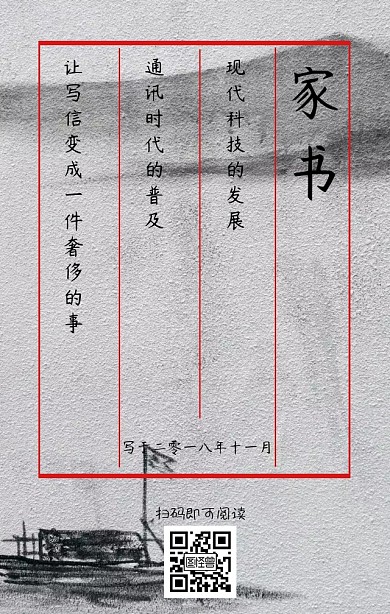 家书
现代科技的发展
通讯时代的普及
让写信变成一件奢侈的事
写于二零一八年十一月
扫码即可阅读
图怪兽